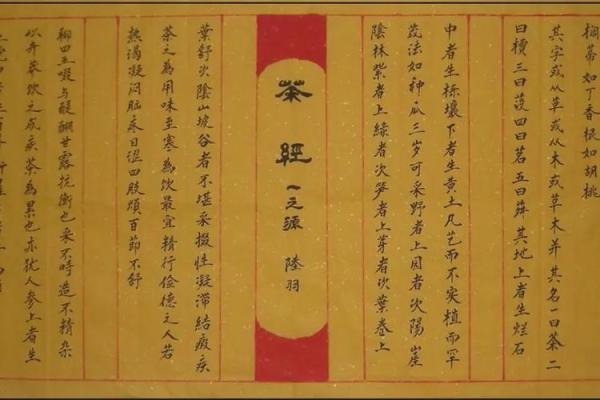 榈蒂如丁香根如胡桃
其字或从草或从木或草木并其名一曰茶二
曰檟三曰蔎四曰茗五曰荈其地上者生烂石
中者生栎壤下者生黄土凡艺而不实植而罕
茂法如种瓜三岁可采野者上园者次陽崖
陰林紫者上綠者次笋者上芽者次葉卷上
茶經 一之源 陸羽
葉舒次陰山坡谷者不堪采掇性凝滞結瘕疾
茶之為用味至寒為饮最宜精行儉德之人若
热渴凝闷脑疼目涩四肢烦百節不舒
聊四五啜与醍醐甘露抗衡也采不時造不精杂
以卉莽饮之成疾茶為累也亦犹人参上者生